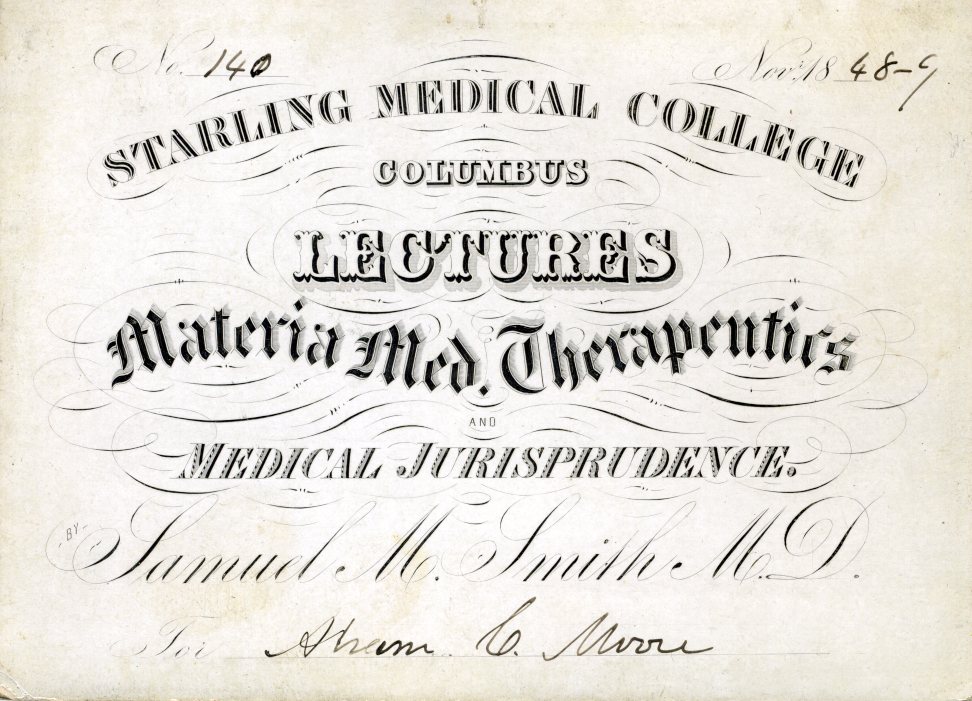 No. 140 Novr. 18 48-9
STARLING MEDICAL COLLEGE
COLUMBUS
LECTURES
Materia Med. Therapeutics
AND
MEDICAL JURISPRUDENCE.
BY
Samuel M. Smith M.D.
For Abram C. Moore